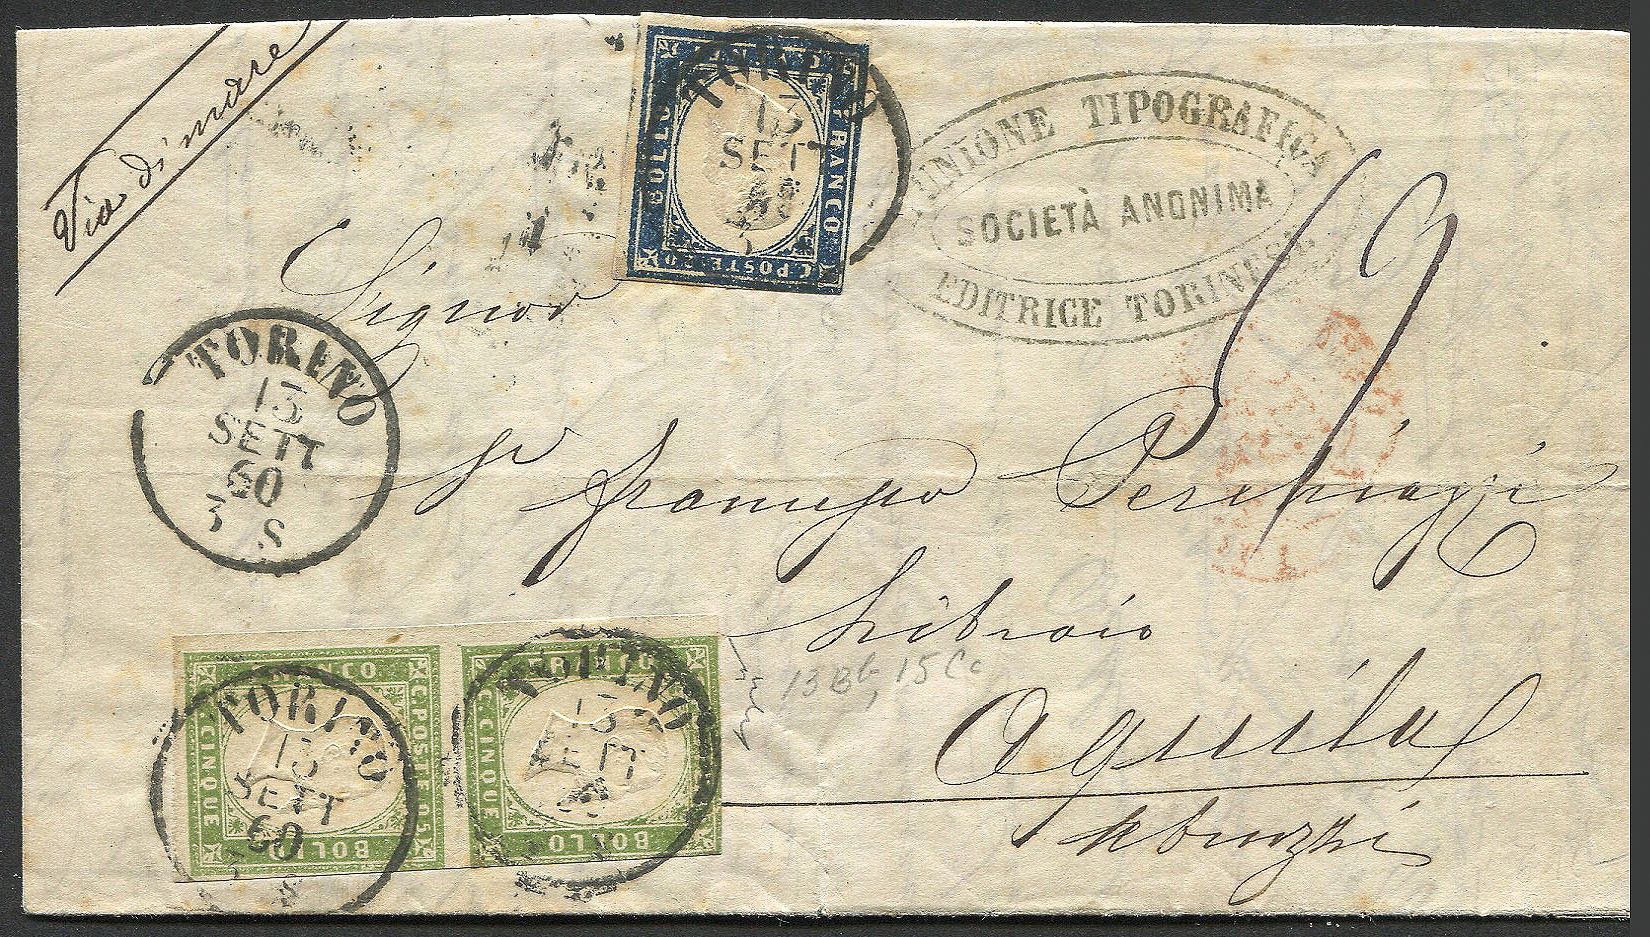 Via di mare
FRANCO
BOLLO
C. POSTE 20
C. VENTI
TORINO
13
SET
60
3
UNIONE TIPOGRAFICA
SOCIETÀ ANONIMA
EDITRICE TORINESE
19
Signor
TORINO
13
SETT
60
3 S
Sr Francesco Perchiazzi
Libraio
Aquila
Abruzzi
13Bb, 15Cc
FRANCO
C. POSTE 05
BOLLO
C. CINQUE
TORINO
13
SETT
60
3 S
FRANCO
C. CINQUE
BOLLO
TORINO
13
SETT
60